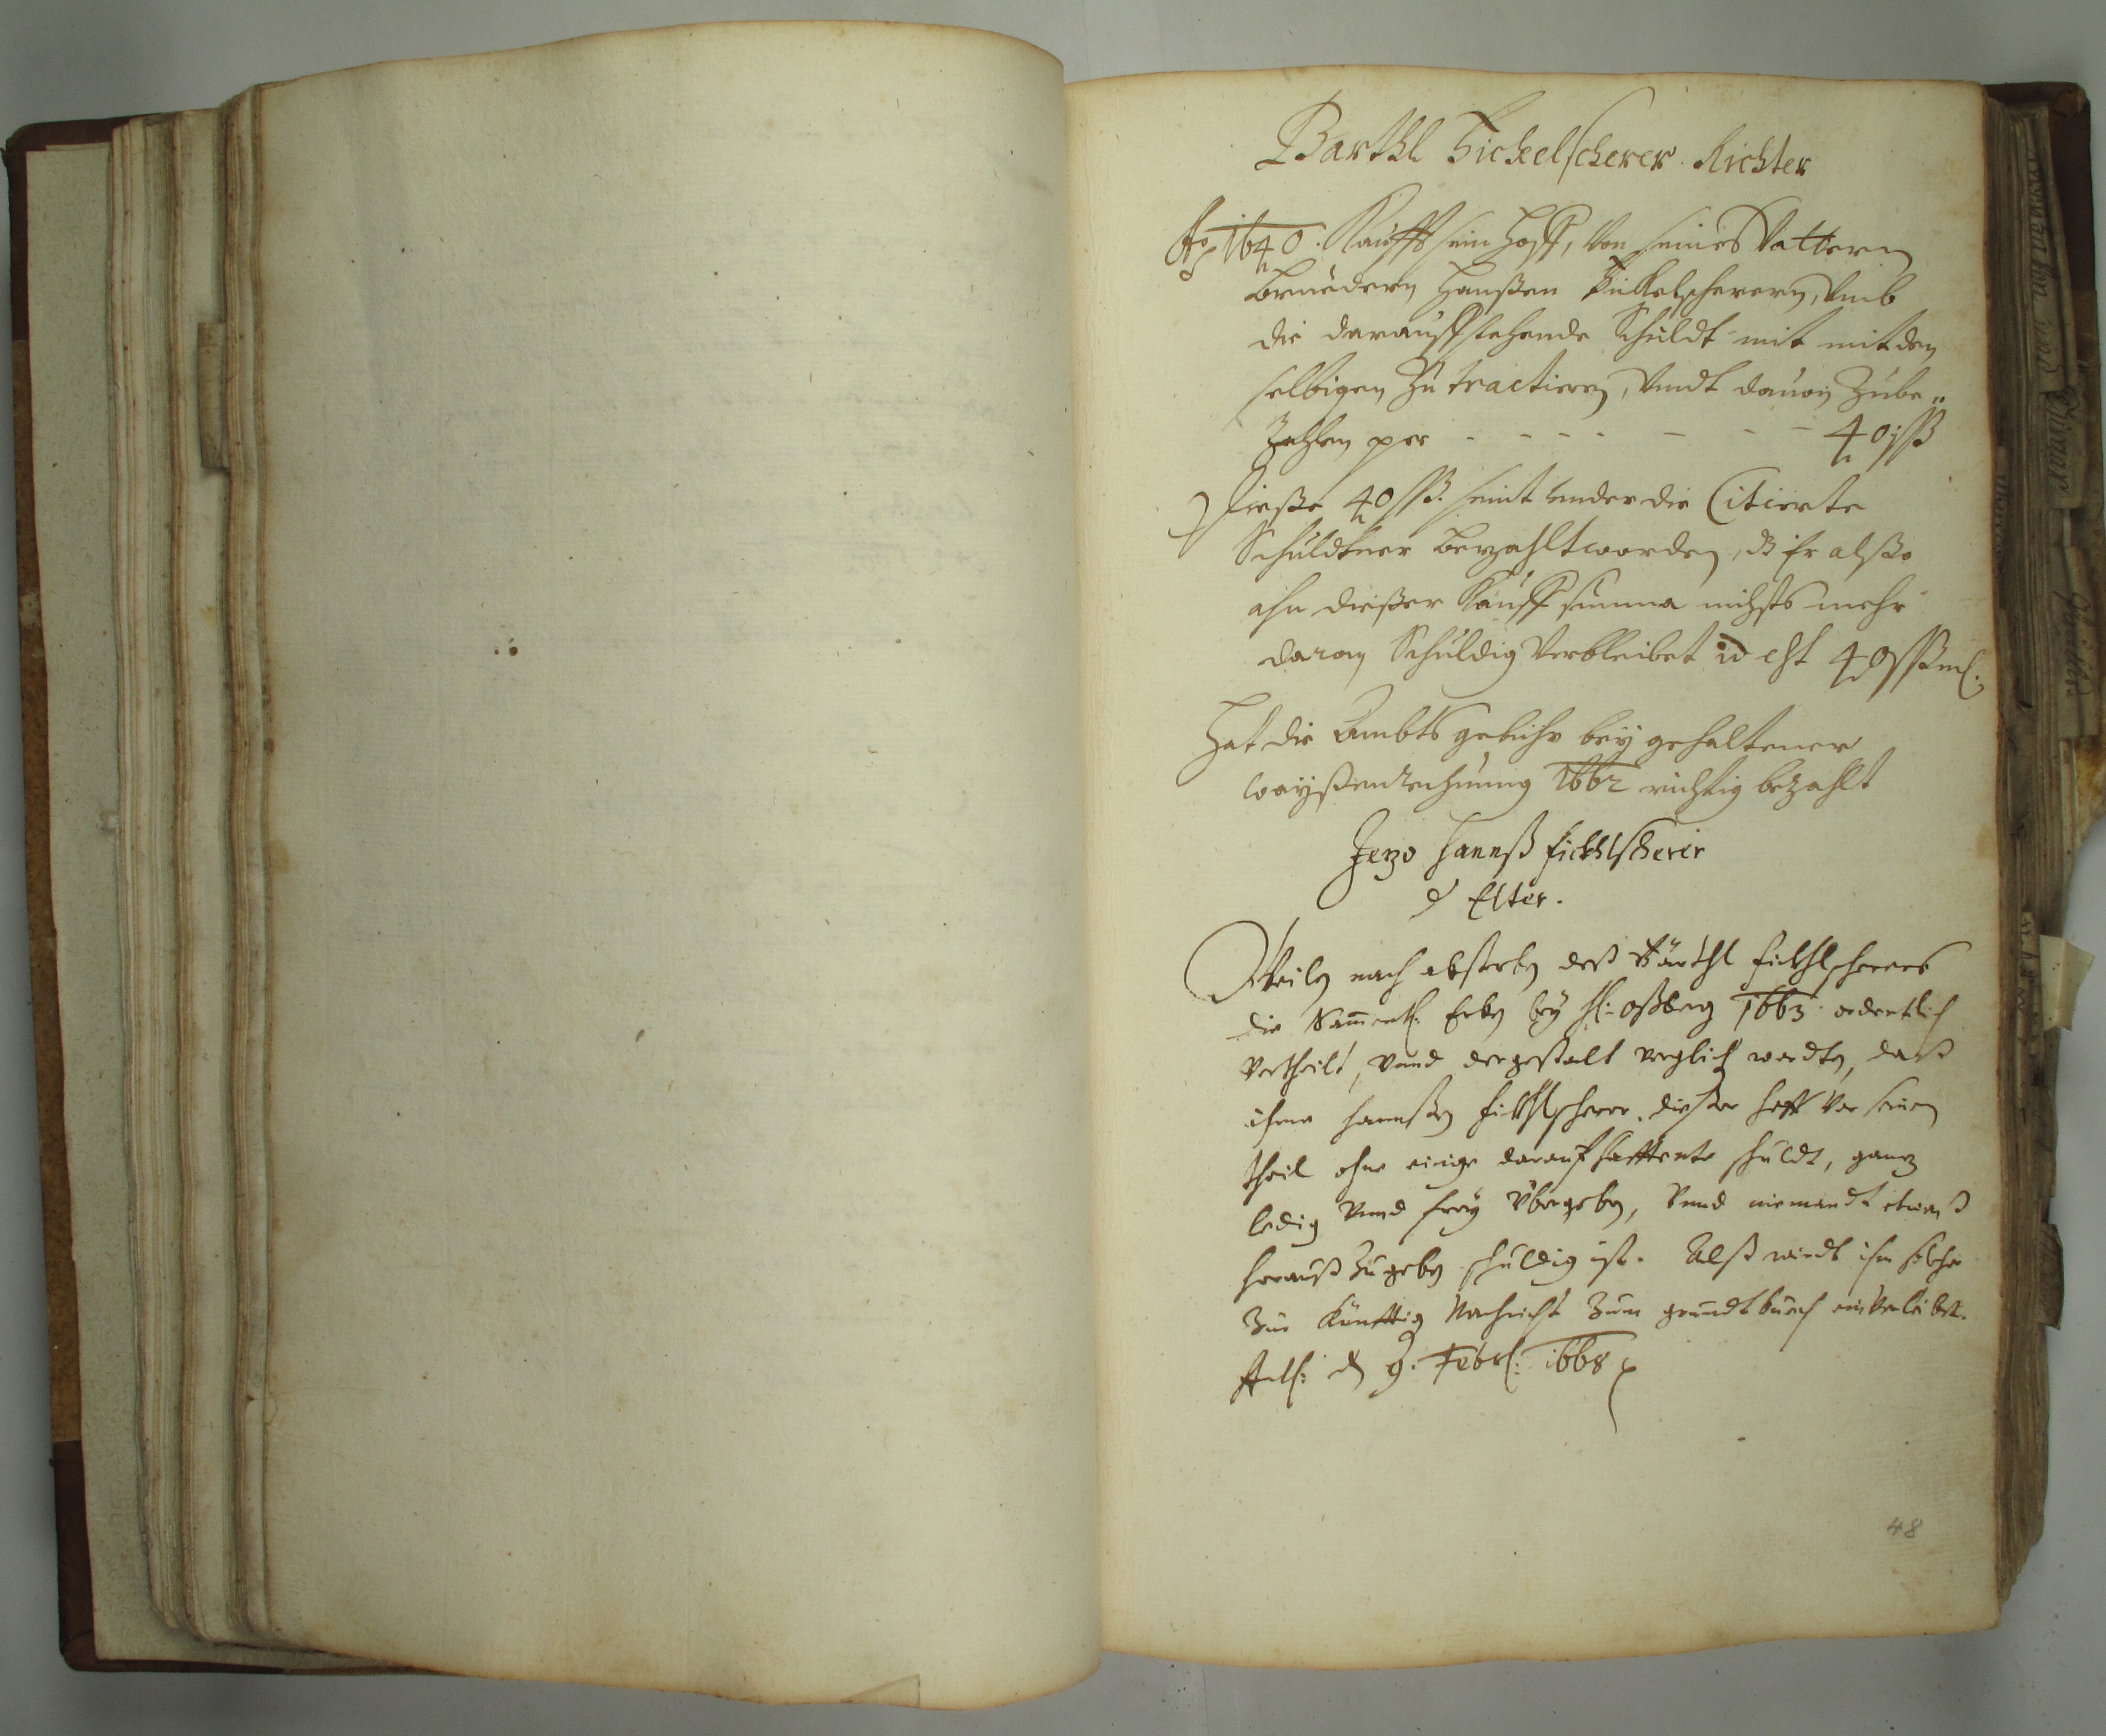 Barthl Fickelscherer Richter
Ao 1640. Kaufft sein Hoff, von seines Vattern
Bruedern Hanßen Fickelscherern, Vmb
die darauffstehende Schuldt mit mit den
selbigen Zu tractieren, Vnndt dauon Zube„
Zahlen per - - - - - - - 40 ßß
Dieße 40 ßß. seint vnder die Citierte
Schuldtner bezahlt worden, dz Er alßo
ahn dießer Kauff summa nichts mehr
daran Schuldig Verbleibet id est 40 ßß
Hat die Ambts gebühr bey gehaltener
wayßenrechnung 1662 richtig bezahlt
Jezo Hannß Fickhlscherer
d Elter.
Weiln nach absterben deß Bärthl Fickhlscherers
die Sammentl: Erben bey 1663 ordentlich
vertheilt, vnnd dergestalt verglichen worden, daß
ihme Hannßen Fickhlscherer dießer Hoff vor seinen
theil ohne einige darauf hafftente schuldt, ganz
ledig vnnd frey übergeben, vnnd niemandt etwaß
herauß Zugeben schuldig ist. Alß wirdt ihm solches
Zur künfftig Nachricht Zum grundtbuech einverleibt.
Actl: d 9. Febrl: 1668
48